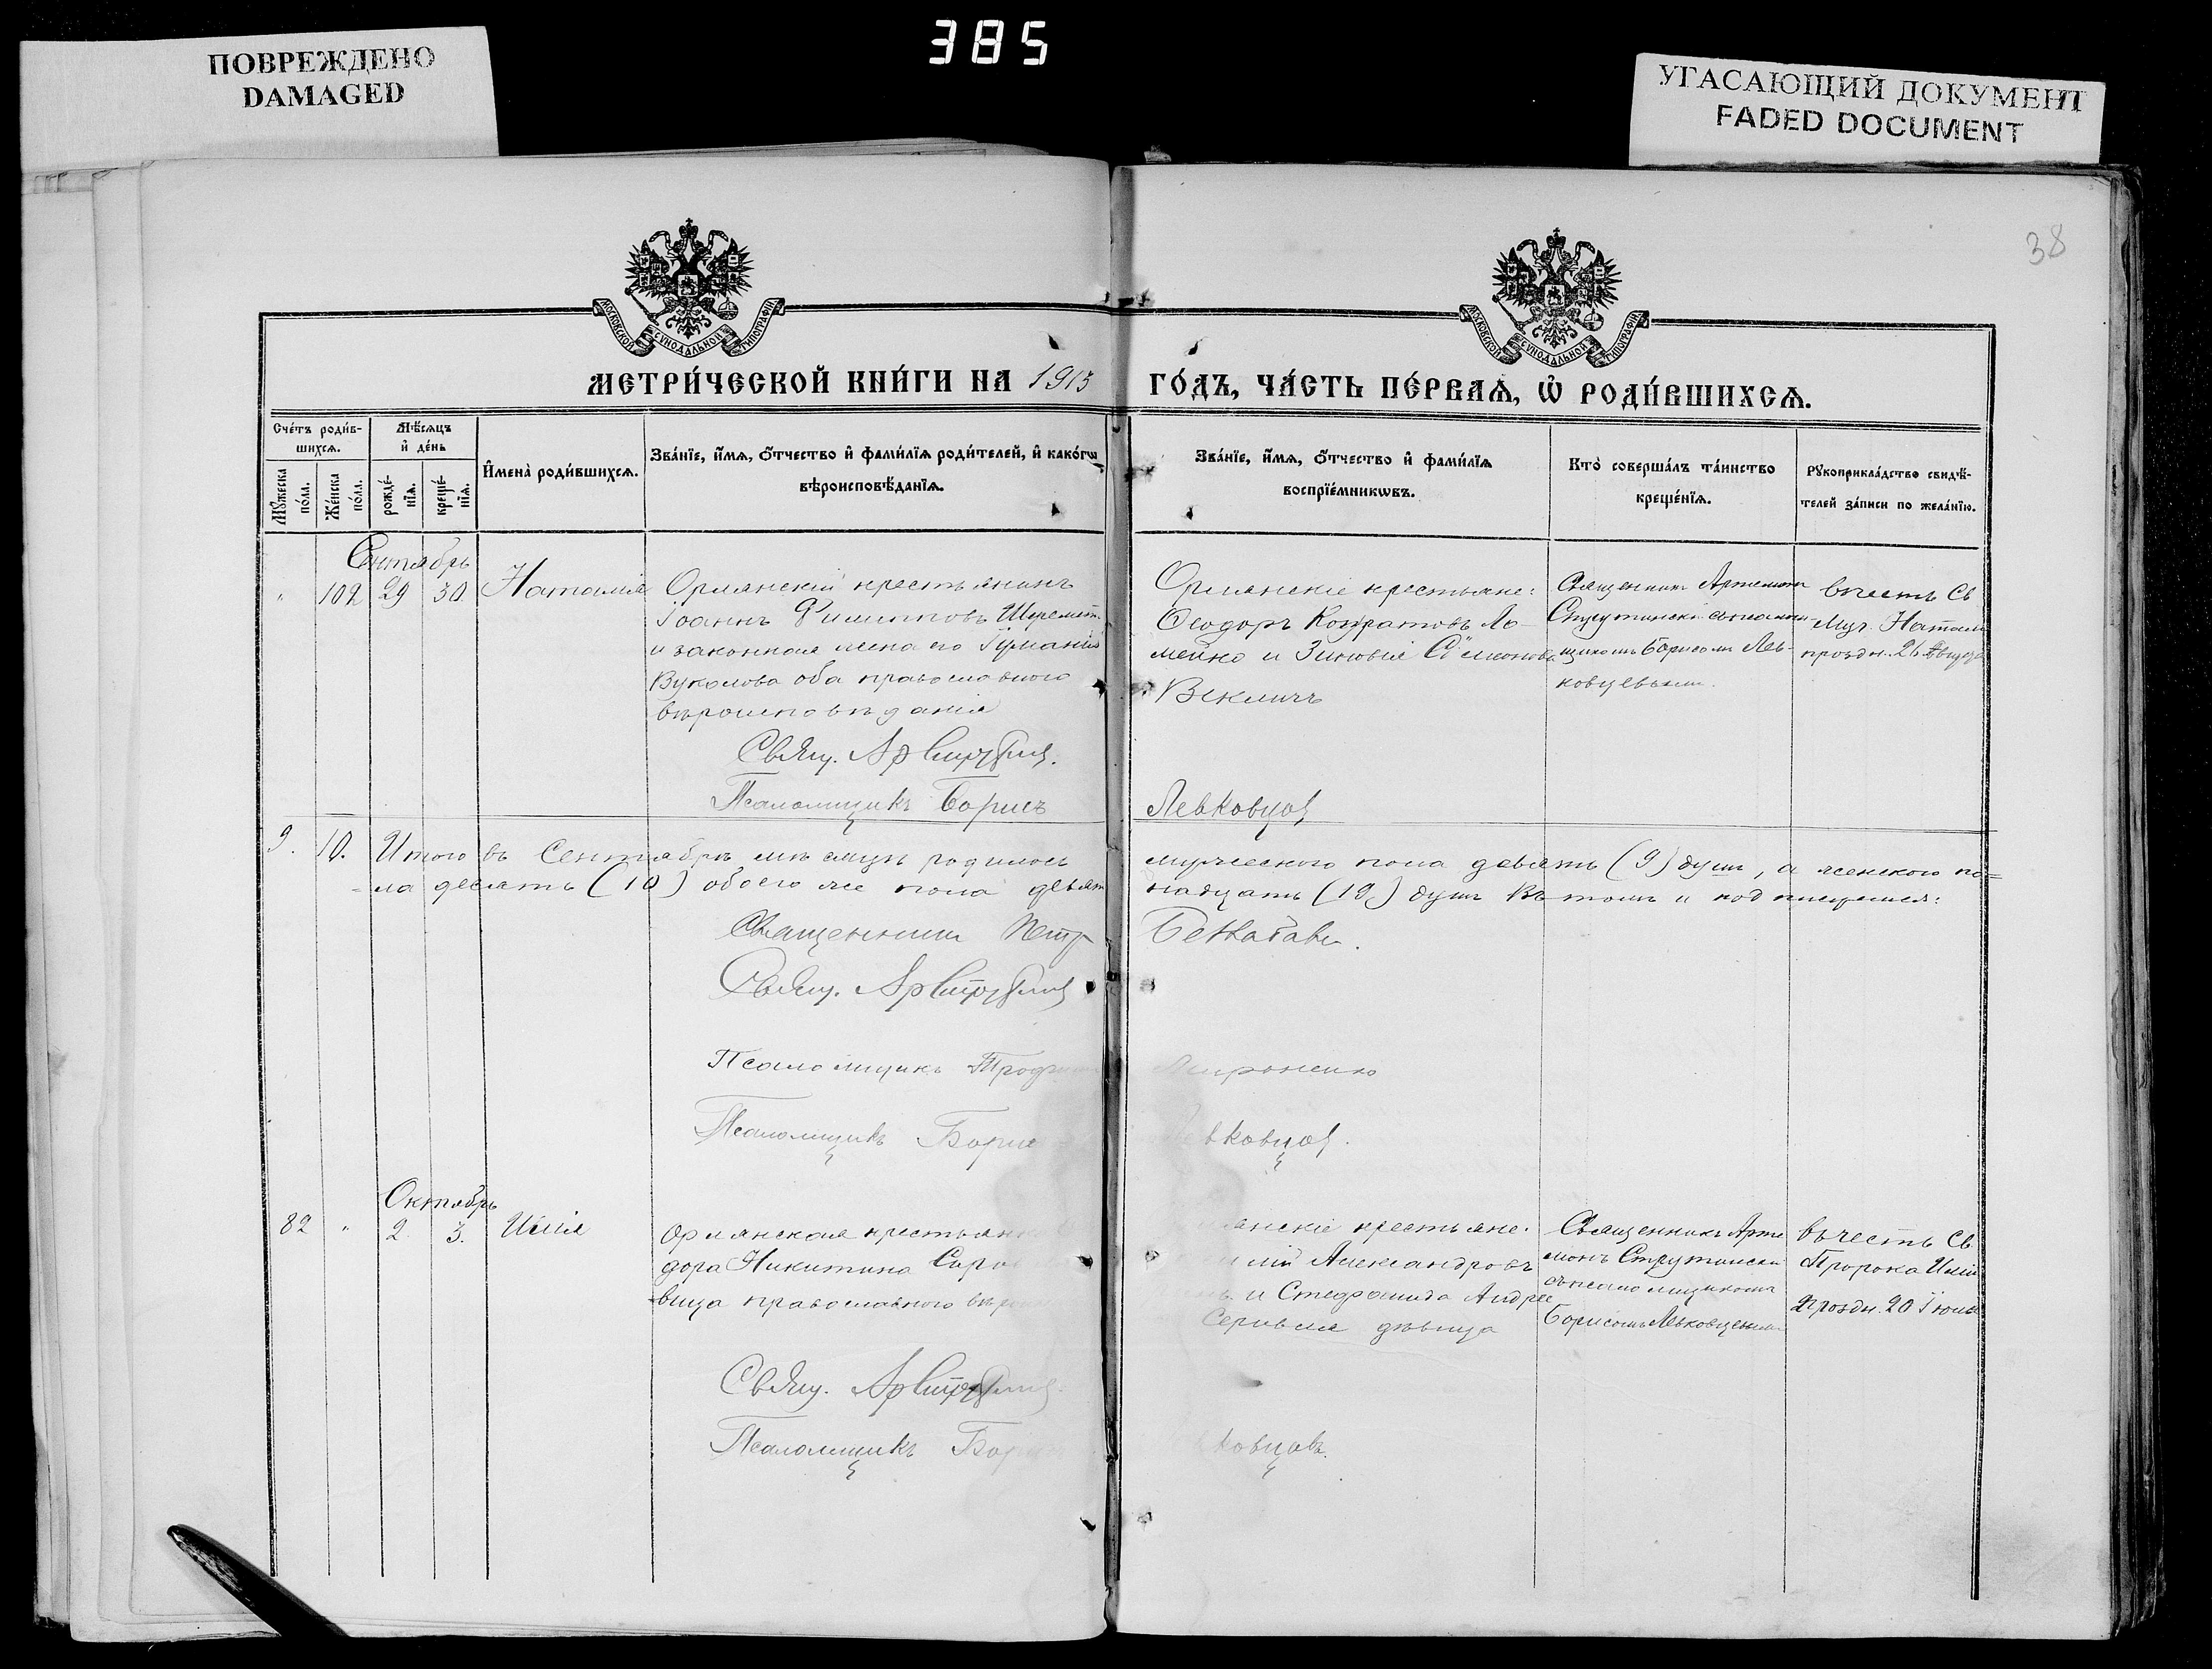 385
ПОВРЕЖДЕНО
DAMAGED
УГАСАЮЩИЙ ДОКУМЕНТ
FADED DOCUMENT
38
МОСКОВСКОЙ СѴНОДАЛЬНОЙ ТИПОГРАФІИ
МОСКОВСКОЙ СѴНОДАЛЬНОЙ ТИПОГРАФІИ
МЕТРИ́ЧЕСКОЙ КНИ́ГИ НА 1913 ГО́ДЪ, ЧА́СТЬ ПЕ́РВАѦ, Ѡ҆ РОДИ́ВШИХСѦ.
Сче́тъ роди́в-
шихсѧ.
Мꙋжеска по́ла.
Же́нска по́ла.
Мѣ́сѧцъ
и҆ де́нь
рожде́-
нїѧ.
креще́-
нїѧ.
И҆мена̀ роди́вшихсѧ.
Зва́нїе, и҆́мѧ, ѻ҆́тчество и҆ фами́лїѧ роди́телей, и҆ како́гѡ
вѣроисповѣ́данїѧ.
Зва́нїе, и҆́мѧ, ѻ҆́тчество и҆ фами́лїѧ
воспрїе́мникѡвъ.
Кто̀ соверша́лъ та́инство
креще́нїѧ.
Рꙋкоприкла́дство свидѣ́-
телей за́писи по жела́нїю.
Сентябрь
" 102 29 30. Наталія
Орлянскій крестьянинъ
Іоаннъ Филиповъ Шеремет
и законная жена его
Вуколова оба православного
вѣроисповѣданія
Орлянскіе крестьяне:
Ѳеодоръ Кондратовъ Ло-
мейко и Зиновія Сѵмеонова
Векличъ
Священникъ Артемонъ
Струтинскій съ псаломщ-
щикомъ Борисомъ Лев-
ковцевымъ.
въ честь Св
муч. Наталіи
праздн. 26 Августа
Свящ. Ар Струтинс.
Псаломщикъ Борисъ Левковцов
9. 10. Итого въ Сентябрѣ мѣсяцѣ родилось мужеского пола девять (9) душъ, а женского по=
=ла десять (10) обоего же пола девятнадцать (19) душъ въ томъ и подписуемся:
Священникъ Петръ
Свящ. Ар Струтинс
Псаломщикъ Мироненко
Псаломщикъ Борис вковцов.
Октябрь
82 " 2. 3. Илія
Орлянская крестьян
дора Никитина
вица православного вѣро
лянскіе крестьяне.
лій Александровъ
и Стефанида Андрее
дѣвица
Священникъ Арте
монъ Струтински
съ псаломщикомъ
Борисомъ Левковцевым
въ честь Св
Пророка Иліи
праздн. 20 Іюля
Свящ. Ар Струтинс.
Псаломщикъ Бори ковцовъ.